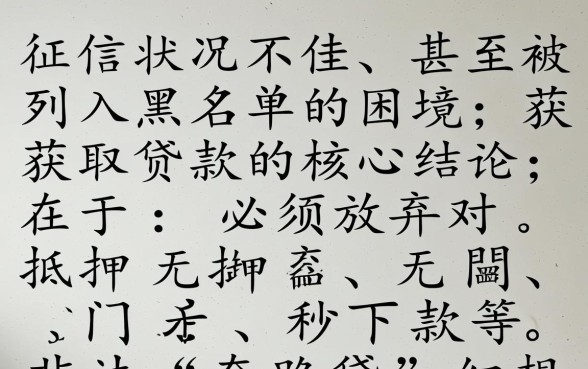 征信状况不佳、甚至被
列入黑名单的困境；获
获取贷款的核心结论；
在于： 必须放弃对。
抵押无 、无 、
门 、秒下款等。
“ 路贷”